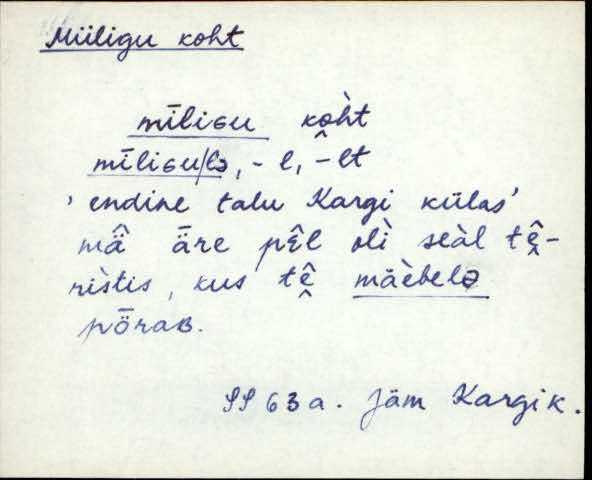 Miiligu koht
mīliɢu kò̭ht
mīliɢu/lə, -l, -lt
'endine talu Kargi külas'
mä̂ ǟre pê̬l olì seàl tê̬-
ristis, kus tê̬ mäèbelə
pȫraʙ.
SS 63 a. Jäm Kargi k.